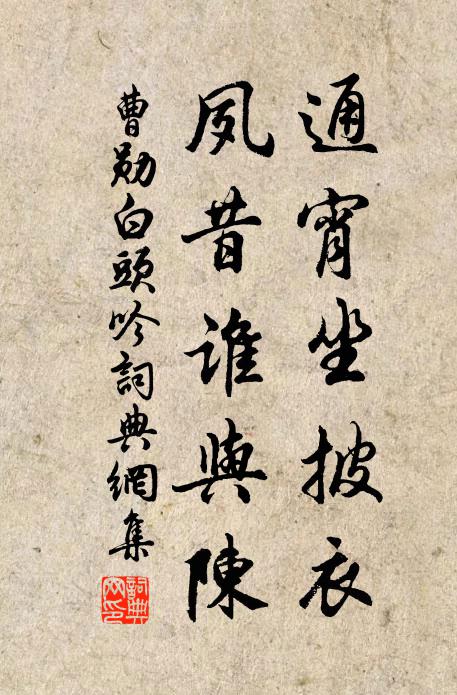 通宵坐披衣
夙昔誰與陳
曹勛白頭吟詞典網集
詞典網印